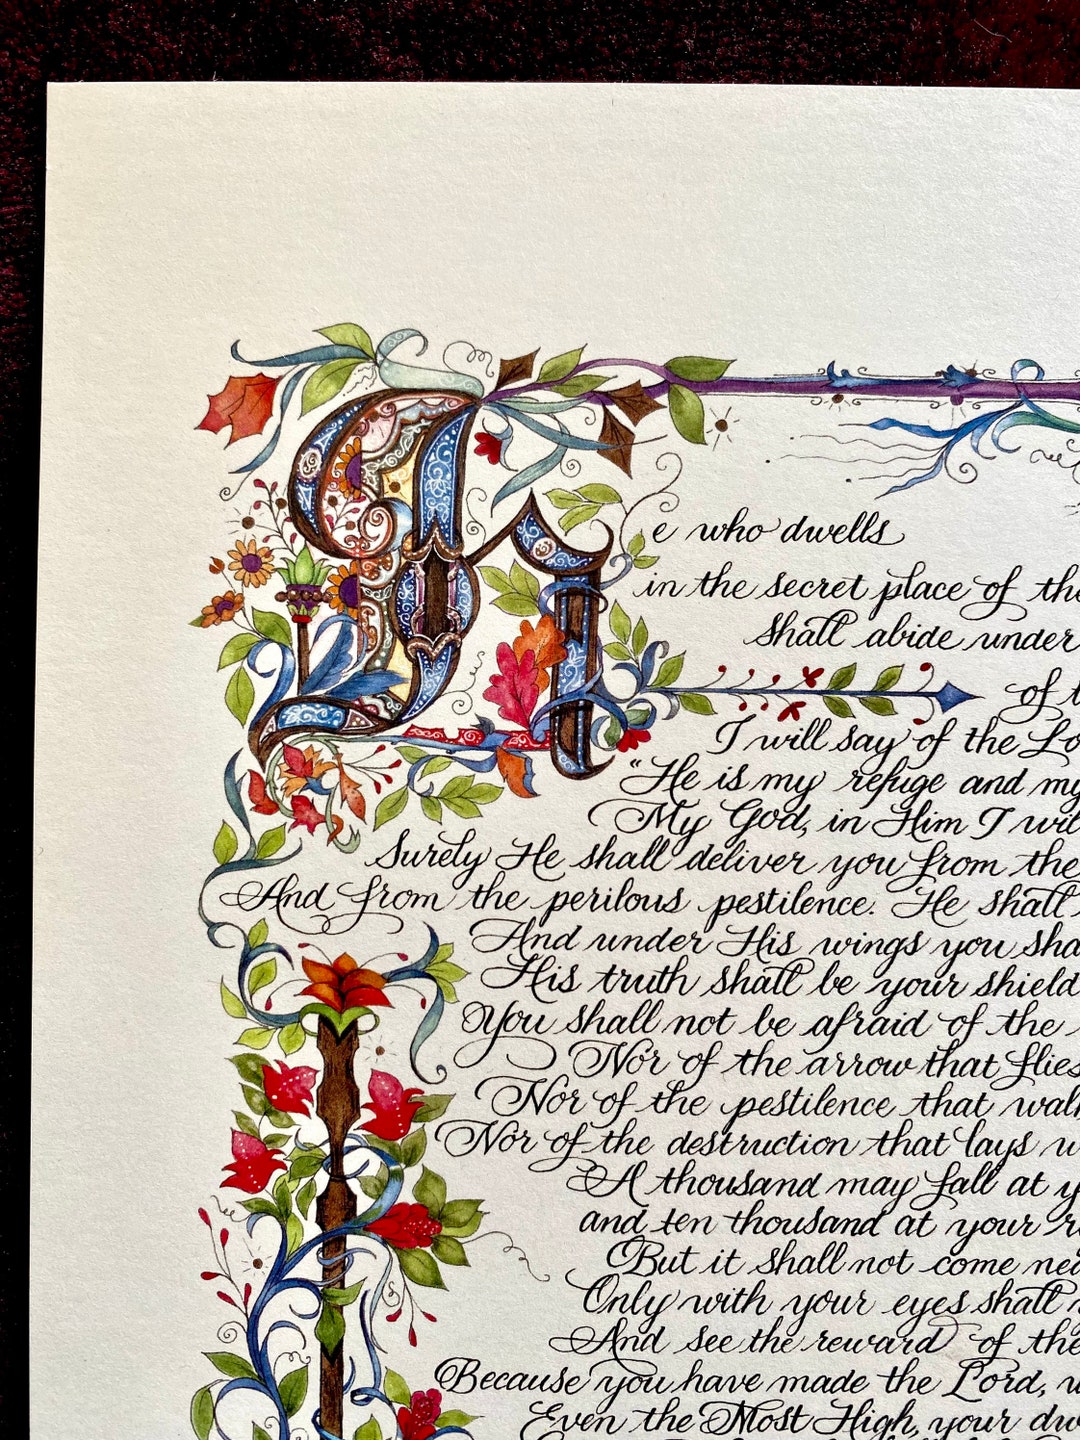 He who dwells
in the secret place of the
shall abide under
of
I will say of the
"He is my refuge and my
My God, in Him I
Surely He shall deliver you from the
And from the perilous pestilence. He shall
And under His wings you
His truth shall be your shield
You shall not be afraid of the
Nor of the arrow that flies
Nor of the pestilence that
Nor of the destruction that lays
A thousand may fall at
and ten thousand at your
But it shall not come
Only with your eyes shall
And see the reward of the
Because you have made the Lord,
Even the Most High, your